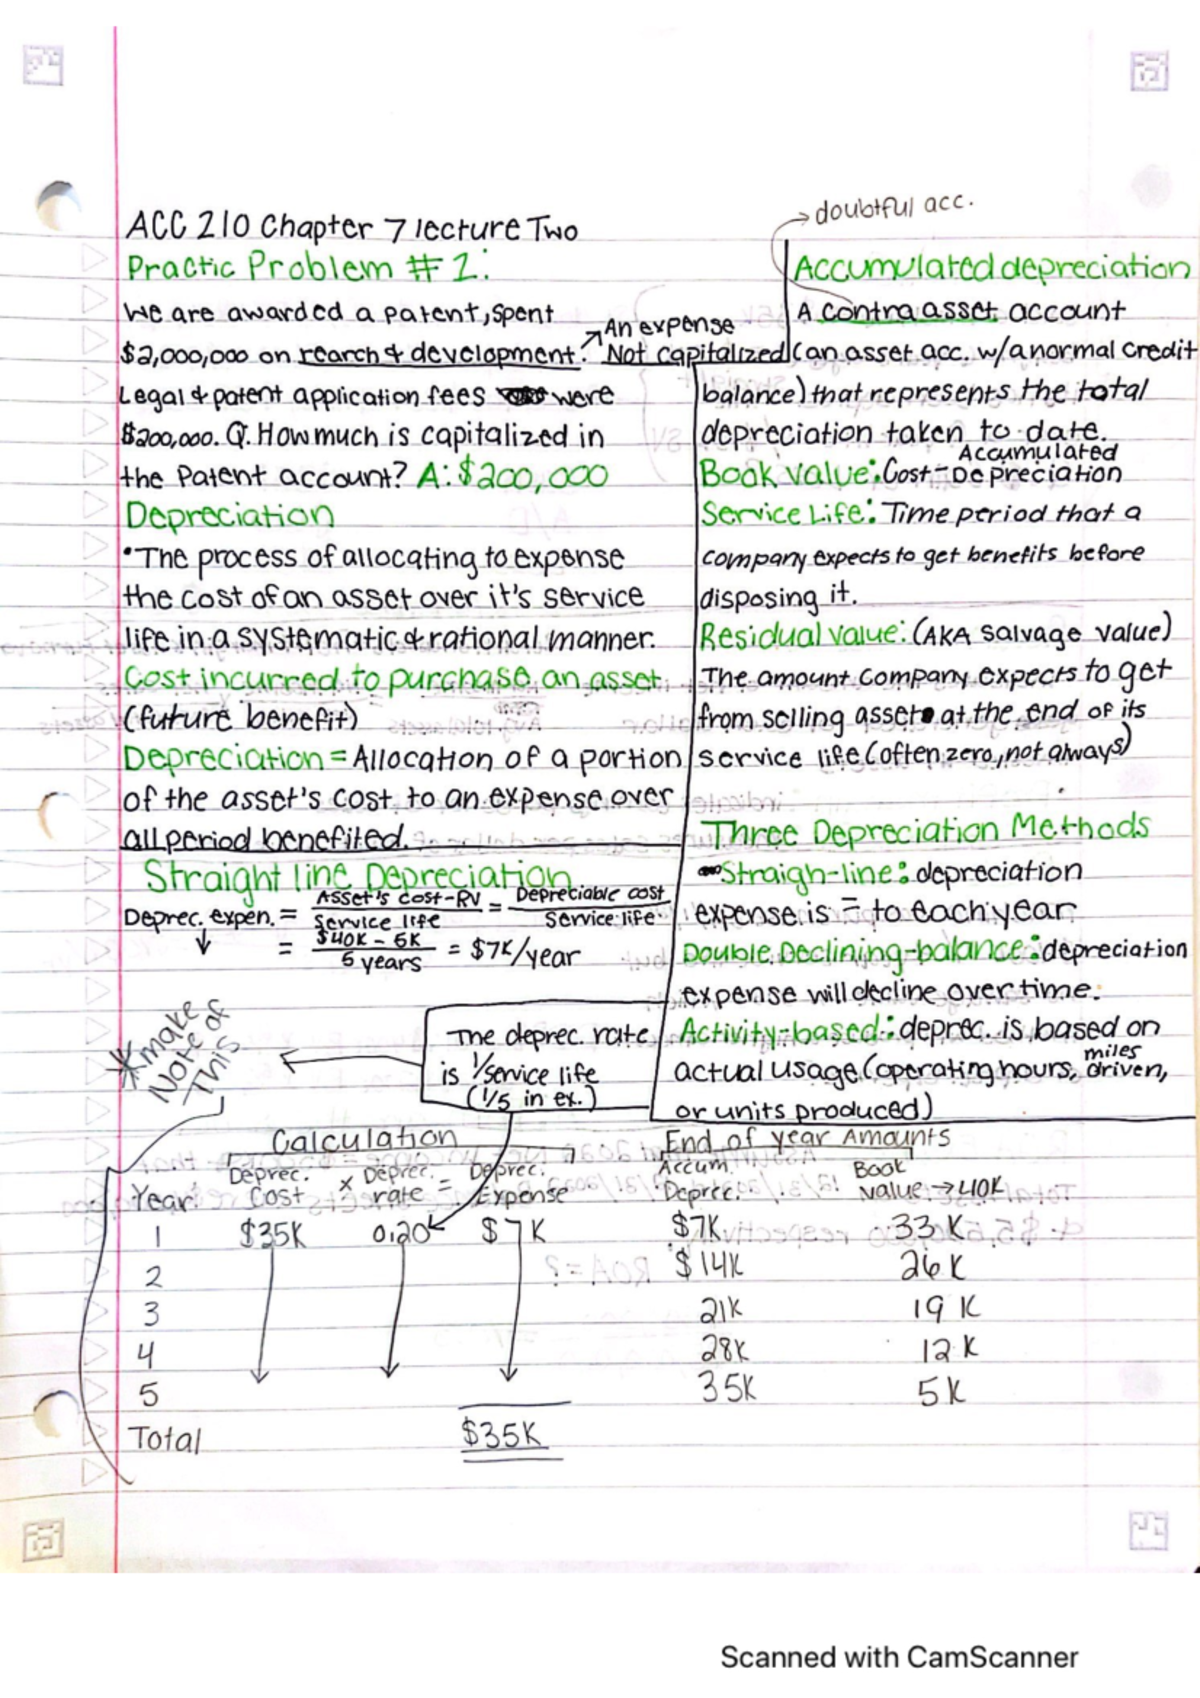 ACC 210 Chapter 7 lecture Two
Practic Problem # 1:
We are awarded a patent, spent
$2,000,000 on rearch & development. Not capitalized
An expense
Legal & patent application fees were
$200,000. Q. How much is capitalized in
the Patent account? A: $200,000
Depreciation
• The process of allocating to expense
the cost of an asset over it's service
life in a systematic & rational manner.
Cost incurred to purchase an asset
(future benefit)
Depreciation = Allocation of a portion
of the asset's cost to an expense over
all period benefited.
Straight line Depreciation
Deprec. expen. = Asset's cost-RV / Service life = Depreciable cost / Service life
= $40K - 5K / 5 years = $7K/year
→ doubtful acc.
Accumulated depreciation
A contra asset account
(an asset acc. w/a normal credit
balance) that represents the total
depreciation taken to date.
Book value: Cost - Accumulated Depreciation
Service Life: Time period that a
company expects to get benefits before
disposing it.
Residual value: (AKA salvage value)
The amount company expects to get
from selling asset at the end of its
service life (often zero, not always)
Three Depreciation Methods
Straigh-line: depreciation
expense is = to each year
Double Declining-balance: depreciation
expense will decline over time.
Activity-based: deprec. is based on
actual usage (operating hours, miles driven,
or units produced)
The deprec. rate
is 1/service life
(1/5 in ex.)
*make
Note of
This
Calculation End of year Amounts
Year Deprec. Cost x Deprec. rate = Deprec. Expense Accum. Deprec. Book value → 40K
1 $35K 0.20 $7K $7K 33K
2 $14K 26K
3 21K 19K
4 28K 12K
5 35K 5K
Total $35K
Scanned with CamScanner